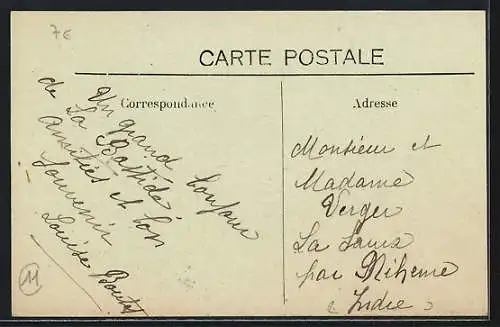 7€
CARTE POSTALE
Correspondance
Adresse
Un grand bonjour
de La Bastide
amitiés et bon
souvenir
Louise
Monsieur et
Madame
Verger
La
par
Indre
11